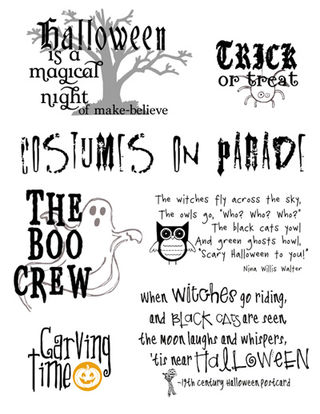 Halloween
is a
magical
night
of make-believe
TRICK
or treat
COSTUMES ON PARADE
THE
BOO
CREW
The witches fly across the sky,
The owls go, "Who? Who? Who?"
The black cats yowl
And green ghosts howl,
"Scary Halloween to you!"
Nina Willis Walter
Carving
time
When Witches go riding,
and BLACK CATS are seen,
the moon laughs and whispers,
'tis near HALLOWEEN
~19th century Halloween postcard